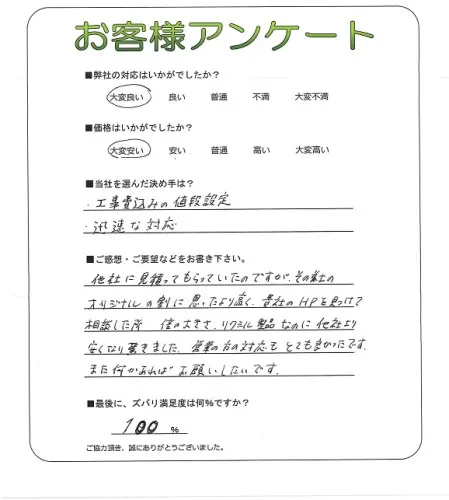 お客様アンケート
■弊社の対応はいかがでしたか?
大変良い 良い 普通 不満 大変不満
■価格はいかがでしたか?
大変安い 安い 普通 高い 大変高い
■当社を選んだ決め手は?
・工事費込みの値段設定
・迅速な対応
■ご感想・ご要望などをお書き下さい。
他社に見積ってもらっていたのですが、その社の
オリジナルの割に思ったより高く、貴社のHPを見つけて
相談した所 倍の大きさ、リクシル製品なのに他社より
安くなり驚きました。営業の方の対応もとても良かったです。
また何かあればお願いしたいです。
■最後に、ズバリ満足度は何%ですか?
100 %
ご協力頂き、誠にありがとうございました。